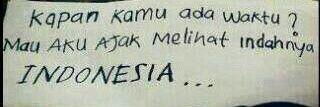 Kapan Kamu ada Waktu ?
Mau AKU AJak Melihat Indahnya
INDONESIA ...